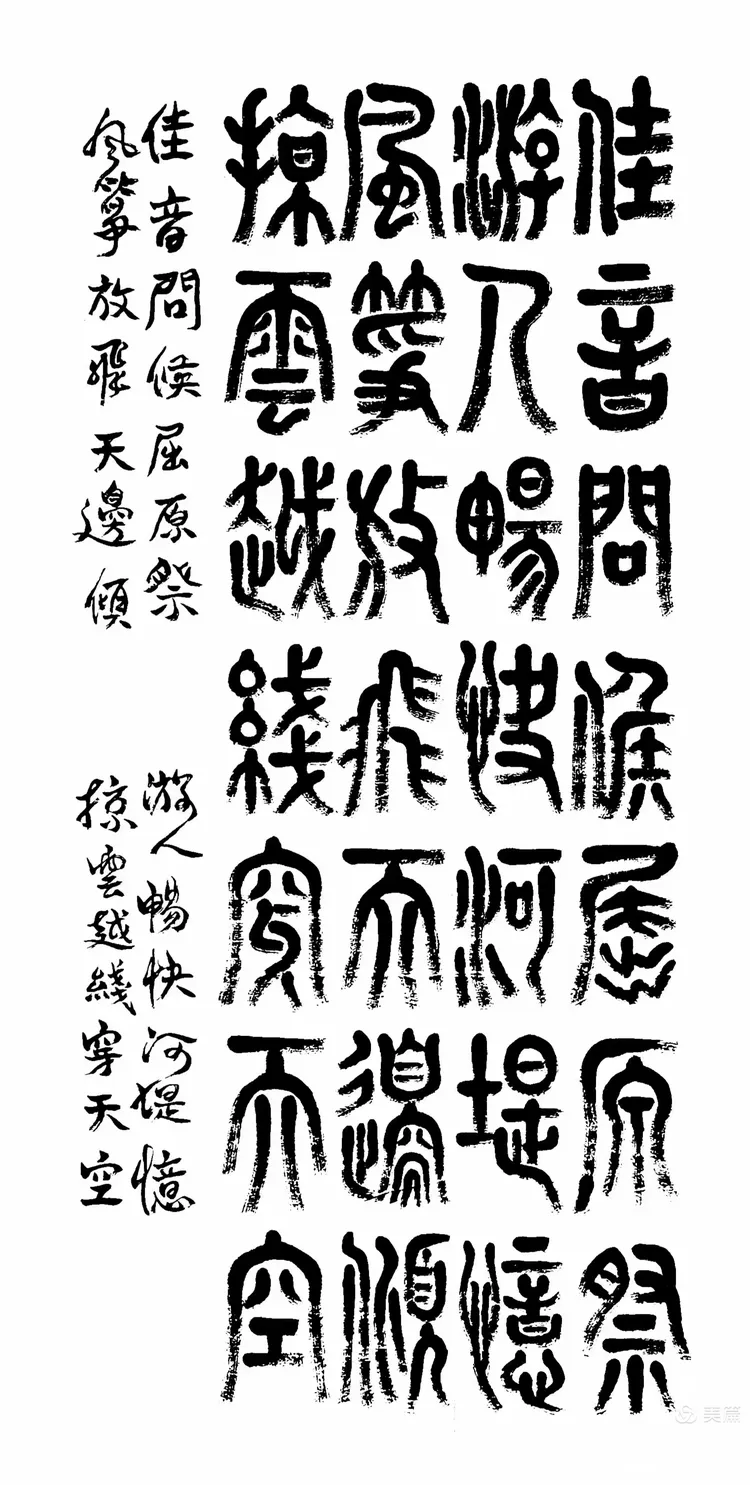 佳音問候屈原祭
游人暢快河堤憶
風箏放飛天邊傾
掠雲越綫穿天空
佳音問候屈原祭
游人暢快河堤憶
風箏放飛天邊傾
掠雲越綫穿天空
美篇